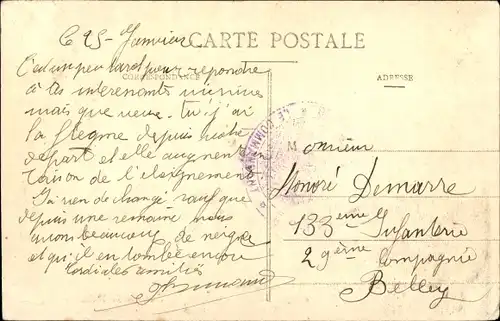 Ce 25 Janvier
CARTE POSTALE
CORRESPONDANCE
ADRESSE
C'est un peu tard pour repondre
à tes interessants
mais que veux-tu j'ai
la flegme depuis notre
depart et elle augmente en
raison de l'eloignement
J'ai rien de changé sauf que
depuis une semaine nous
avons beaucoup de neige
et qu'il en tombe encore
Cordiales amitiés
LE COMMANDANT
Monsieur
Honoré Demarre
133ème Infanterie
2gème Compagnie
Belley